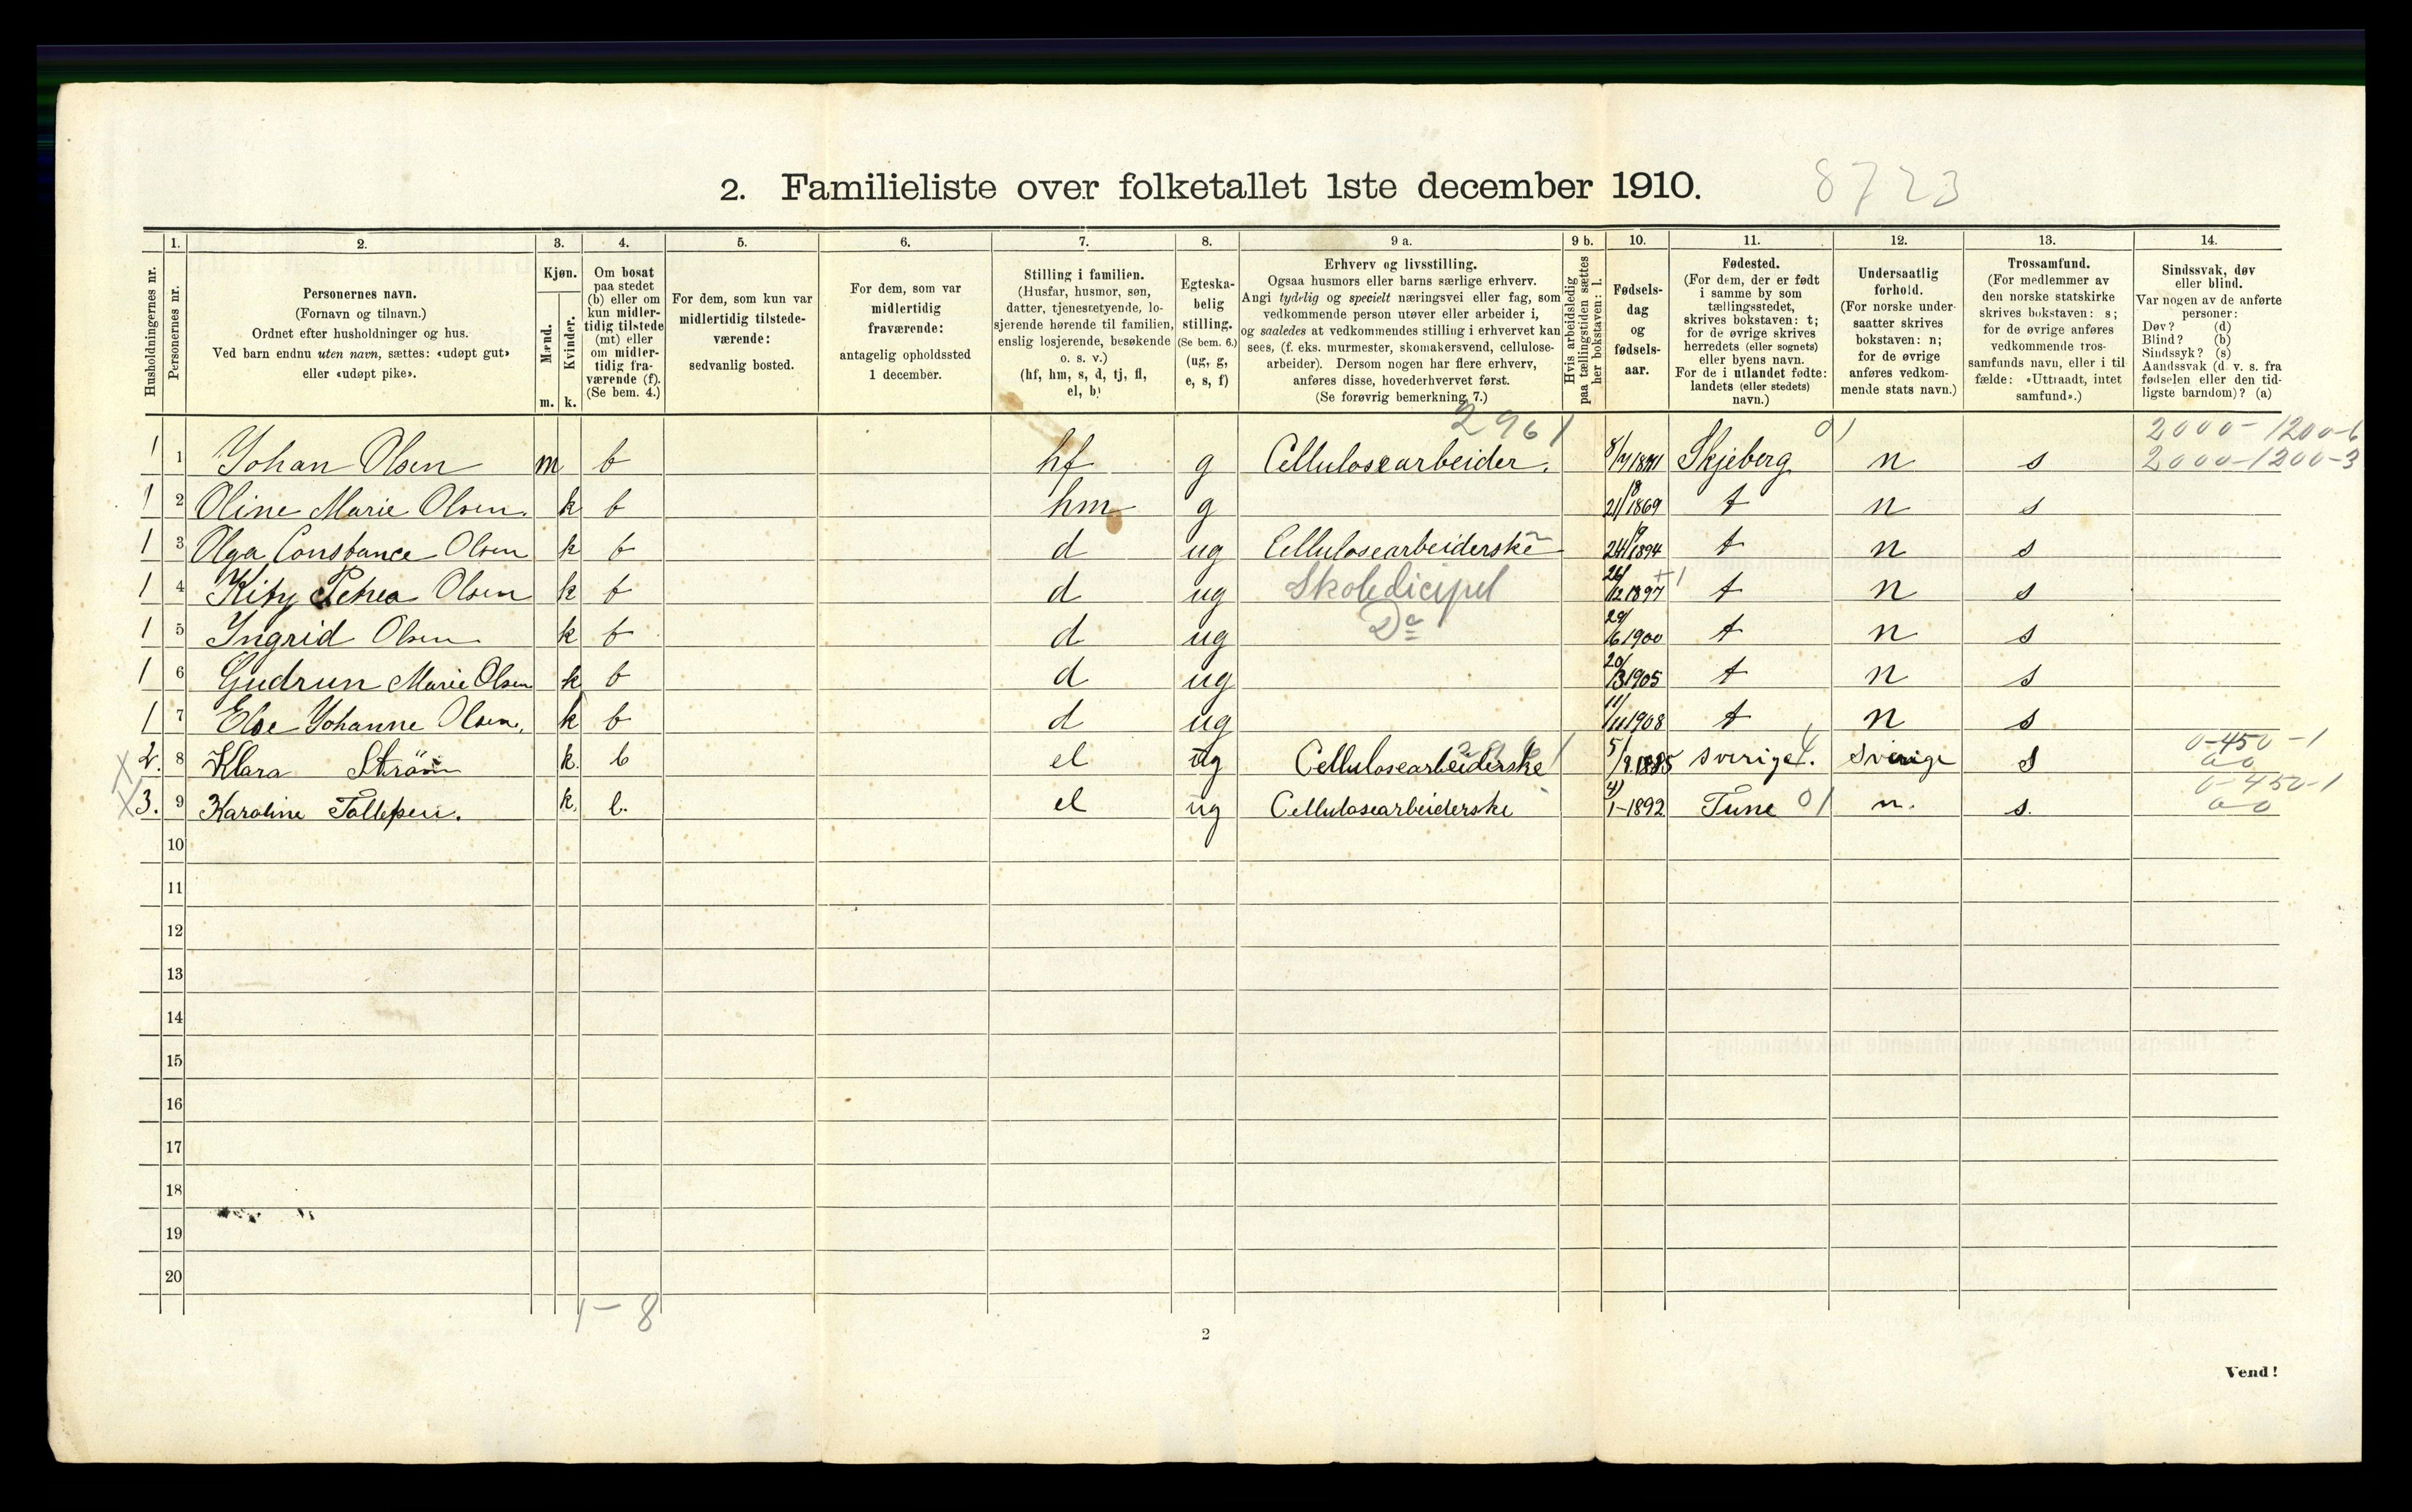 2. Familieliste over folketallet 1ste december 1910. 8723
1. 2. 3. 4. 5. 6. 7. 8. 9 a. 9 b. 10. 11. 12. 13. 14.
Husholdningernes nr.
Personernes nr.
Personernes navn.
(Fornavn og tilnavn.)
Ordnet efter husholdninger og hus.
Ved barn endnu uten navn, sættes: «udøpt gut»
eller «udøpt pike».
Kjøn.
Mænd.
Kvinder.
m. k.
Om bosat
paa stedet
(b) eller om
kun midler-
tidig tilstede
(mt) eller
om midler-
tidig fra-
værende (f).
(Se bem. 4.)
For dem, som kun var
midlertidig tilstede-
værende:
sedvanlig bosted.
For dem, som var
midlertidig
fraværende:
antagelig opholdssted
1 december.
Stilling i familien.
(Husfar, husmor, søn,
datter, tjenestetyende, lo-
sjerende hørende til familien,
enslig losjerende, besøkende
o. s. v.)
(hf, hm, s, d, tj, fl,
el, b)
Egteska-
belig
stilling.
(Se bem. 6.)
(ug, g,
e, s, f)
Erhverv og livsstilling.
Ogsaa husmors eller barns særlige erhverv.
Angi tydelig og specielt næringsvei eller fag, som
vedkommende person utøver eller arbeider i,
og saaledes at vedkommendes stilling i erhvervet kan
sees, (f. eks. murmester, skomakersvend, cellulose-
arbeider). Dersom nogen har flere erhverv,
anføres disse, hovederhvervet først.
(Se forøvrig bemerkning 7.)
Hvis arbeidsledig
paa tællingstiden sættes
her bokstaven: l.
Fødsels-
dag
og
fødsels-
aar.
Fødested.
(For dem, der er født
i samme by som
tællingsstedet,
skrives bokstaven: t;
for de øvrige skrives
herredets (eller sognets)
eller byens navn.
For de i utlandet fødte:
landets (eller stedets)
navn.)
Undersaatlig
forhold.
(For norske under-
saatter skrives
bokstaven: n;
for de øvrige
anføres vedkom-
mende stats navn.)
Trossamfund.
(For medlemmer av
den norske statskirke
skrives bokstaven: s;
for de øvrige anføres
vedkommende tros-
samfunds navn, eller i til-
fælde: «Uttraadt, intet
samfund».)
Sindssvak, døv
eller blind.
Var nogen av de anførte
personer:
Døv? (d)
Blind? (b)
Sindssyk? (s)
Aandssvak (d. v. s. fra
fødselen eller den tid-
ligste barndom)? (a)
2961 01 2000-1200-6
1 1 Johan Olsen m b hf g Cellulosearbeider. Skjeberg n s 2000-1200-3
1 2 Oline Marie Olsen. k b hm g 21/8 1869 t n s
1 3 Olga Constance Olsen k b d ug Cellulosearbeiderske 24/9 1894 t n s
1 4 Kity Petrea Olsen k b d ug Skoledicipel 26/12 1897 t n s
1 5 Ingrid Olsen k b d ug Do 29/6 1900 t n s
1 6 Gudrun Marie Olsen k b d ug 20/3 1905 t n s
1 7 Else Johanne Olsen. k b d ug 11/11 1908 t n s
0-450-1
x 2. 8 Klara Ström k. b el ug Cellulosearbeiderske 5/9 1885 sverige. sverige s 00
0-450-1
x 3. 9 Karoline Tollefsen. k. b. el ug Cellulosearbeiderske 4/1-1892 Tune 01 n. s. 00
10
11
12
13
14
15
16
17
18
19
20
1-8
2
Vend!